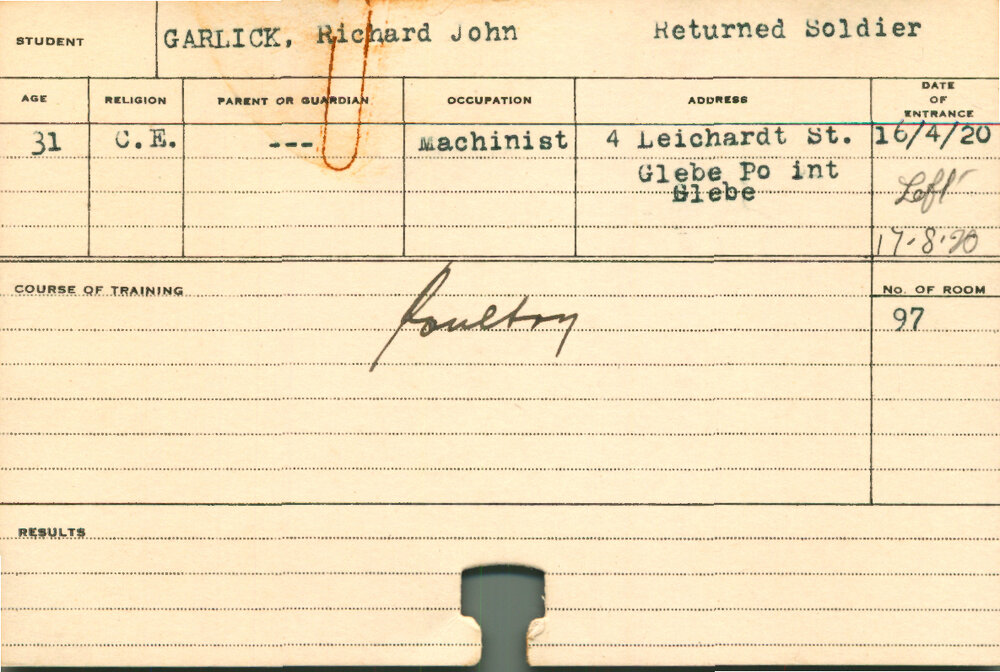 STUDENT GARLICK, Richard John Returned Soldier
AGE RELIGION PARENT OR GUARDIAN OCCUPATION ADDRESS DATE OF ENTRANCE
31 C.E. --- Machinist 4 Leichardt St. 16/4/20
Glebe Po int
Glebe Left
17.8.20
COURSE OF TRAINING Poultry No. OF ROOM
97
RESULTS